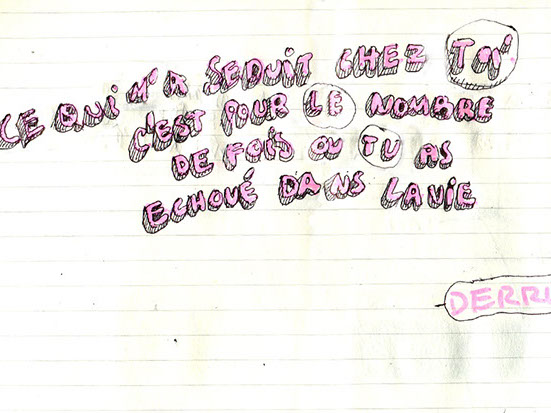 CE QUI M'A SEDUIT CHEZ TOI
C'EST POUR LE NOMBRE
DE FOIS OU TU AS
ECHOUÉ DANS LA VIE
DERRI